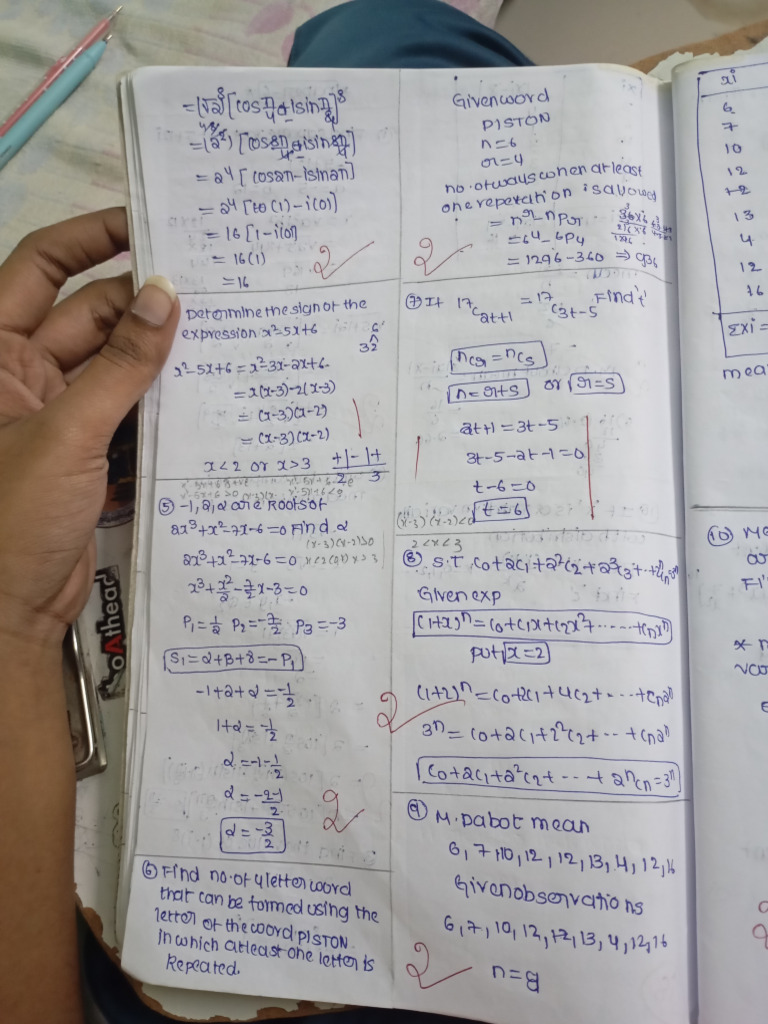 =(√2)⁸ [cos π/4 + isin π/4]⁸
= 2⁴ [cos2π - isin2π]
= 2⁴ [to(1) - i(0)]
= 16 [1-i(0)]
= 16(1)
= 16
2
Determine the sign of the
expression x²-5x+6
6
3 2
x²-5x+6 = x²-3x-2x+6
= x(x-3)-2(x-3)
= (x-3)(x-2)
= (x-3)(x-2)
x<2 or x>3
+ | - | +
2 3
(x-3)(x-2)>0
x<2 (or) x>3
⑤ -1, 2, α are Roots of
2x³+x²-7x-6=0 Find α
2x³+x²-7x-6=0
x³+x²/2-7/2x-3=0
P₁=1/2 P₂=-7/2 P₃=-3
S₁=α+β+γ=-P₁
-1+2+α=-1/2
1+α=-1/2
α=-1-1/2
α=-2-1/2
α=-3/2
2
⑥ Find no.of 4 letter word
that can be formed using the
letter of the word PISTON
in which atleast one letter is
Repeated.
Given word
PISTON
n=6
r=4
no.of ways when at least
one repetation is allowed
= nʳ - nPr
= 6⁴ - 6P4
= 1296-360 ⇒ 936
2
⑦ If 17C2t+1 = 17C3t-5 Find 't'
nCr=nCs
n=r+s or r=s
2t+1=3t-5
3t-5-2t-1=0
t-6=0
t=6
(x-3)(x-2)<0
2<x<3
⑧ S.T C0+2C1+2²C2+2³C3+..+2ⁿCn=3ⁿ
Given exp
(1+x)ⁿ=C0+C1x+C2x²+-----+Cnxⁿ
put x=2
(1+2)ⁿ=C0+2C1+4C2+---+Cn2ⁿ
3ⁿ=C0+2C1+2²C2+--+Cn2ⁿ
C0+2C1+2²C2+---+2ⁿCn=3ⁿ
2
⑨ M.D abot mean
6, 7, 10, 12, 12, 13, 4, 12, 16
Given observations
6, 7, 10, 12, 12, 13, 4, 12, 16
n=9
2
xi
6
7
10
12
12
13
4
12
16
Σxi=
mea
⑩